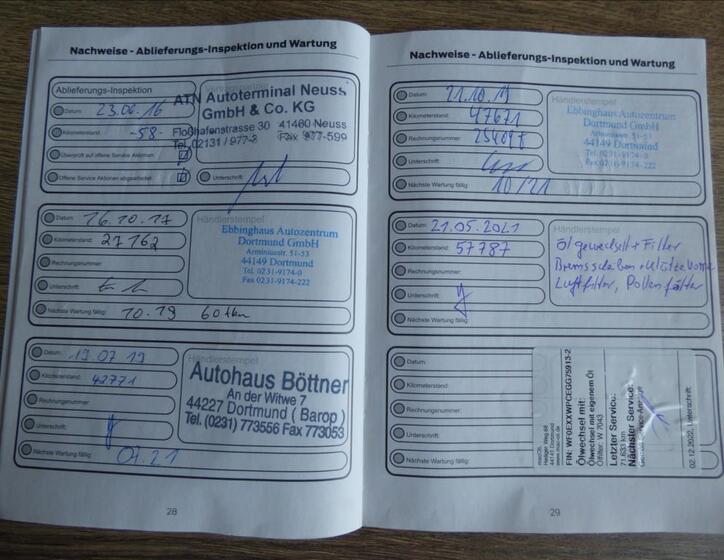 Nachweise - Ablieferungs-Inspektion und Wartung
Ablieferungs-Inspektion
Datum: 23.06.16
Kilometerstand: -58-
Überprüft auf offene Service Aktionen
Offene Service Aktionen abgearbeitet
Unterschrift:
ATN Autoterminal Neuss
GmbH & Co. KG
Floßhafenstrasse 30 41460 Neuss
Tel. 02131 / 977-3 Fax 977-599
Datum: 16.10.17
Kilometerstand: 27162
Rechnungsnummer:
Unterschrift:
Nächste Wartung fällig: 10.19 60tkm
Händlerstempel
Ebbinghaus Autozentrum
Dortmund GmbH
Arminiusstr. 51-53
44149 Dortmund
Tel. 0231-9174-0
Fax 0231-9174-222
Datum: 19 07 19
Kilometerstand: 42771
Rechnungsnummer:
Unterschrift:
Nächste Wartung fällig: 07.21
Händlerstempel
Autohaus Böttner
An der Witwe 7
44227 Dortmund ( Barop )
Tel. (0231) 773556 Fax 773053
28
Nachweise - Ablieferungs-Inspektion und Wartung
Datum: 21.10.19
Kilometerstand: 47671
Rechnungsnummer:
Unterschrift:
Nächste Wartung fällig: 10/21
Händlerstempel
Ebbinghaus Autozentrum
Dortmund GmbH
Arminiusstr. 51-53
44149 Dortmund
Tel. 0231-9174-0
Fax 0231-9174-222
Datum: 21.05.2021
Kilometerstand: 57787
Rechnungsnummer:
Unterschrift:
Nächste Wartung fällig:
Händlerstempel
Öl gewechselt + Filter
Bremsscheiben + Klötze vorne
Luftfilter, Pollenfilter
Datum:
Kilometerstand:
Rechnungsnummer:
Unterschrift:
Nächste Wartung fällig:
44141 Dortmund
FIN: WF0EXXWPCEGG75913-2
Ölwechsel mit:
Ölwechsel mit eigenem Öl
Ölfilter: W 7043
Letzter Service:
71.633 km
Nächster Service:
02.12.2022, Unterschrift:
29